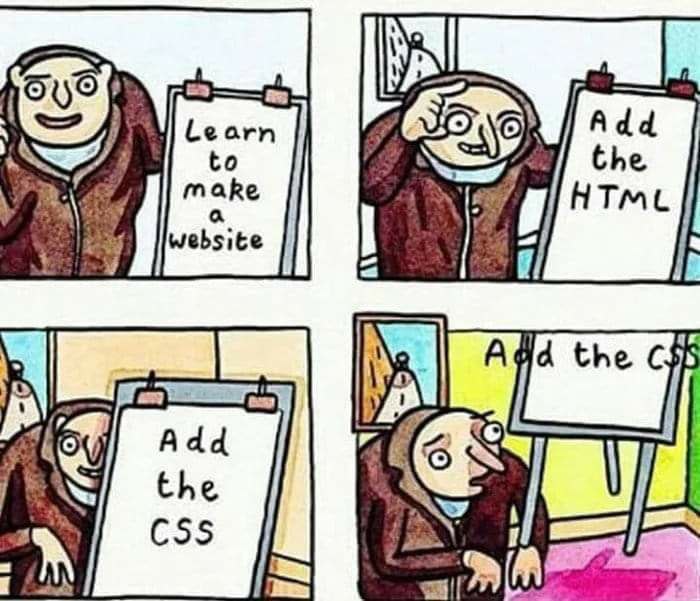 Learn
to
make
a
website
Add
the
HTML
Add
the
CSS
Add the CSS